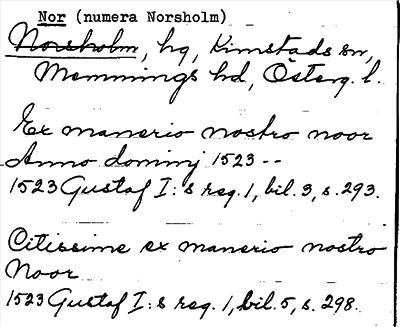 Nor (numera Norsholm)
Norsholm, hg, Kimstads sn,
Memmings hd, Österg. l.
Ex manerio nostro noor
Anno dominj 1523 --
1523 Gustaf I:s reg. 1, bil. 3, s. 293.
Citissime ex manerio nostro
Noor
1523 Gustaf I:s reg. 1, bil. 5, s. 298.